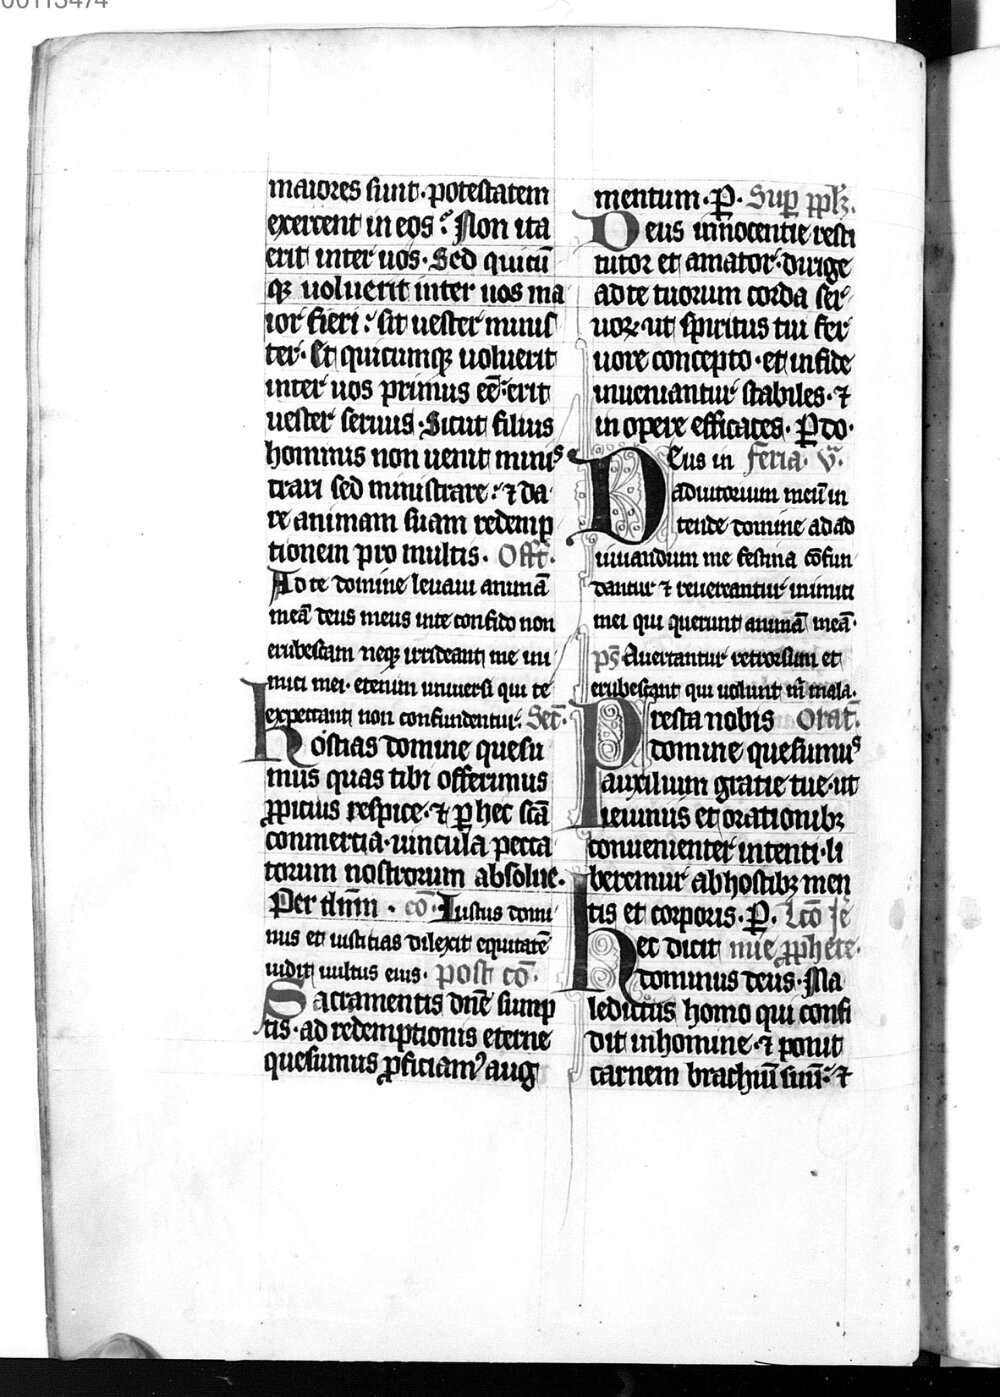 00113474
maiores sunt · potestatem
exercent in eos : Non ita
erit inter uos · Sed quicū
qꝫ uoluerit inter uos ma
ior fieri : sit uester minis
ter · Et quicumqꝫ uoluerit
inter uos primus eē : erit
uester seruus · Sicut filius
hominis non uenit minisꝰ
trari sed ministrare : ⁊ da
re animam suam redemp
tionem pro multis · Offr̄ ·
Ad te domine leuaui animā
meā deus meus in te confido non
erubescam neqꝫ irrideant me ini
mici mei · etenim uniuersi qui te
expectant non confundentur · Sec̄ ·
hostias domine quesu
mus quas tibi offerimus
ꝓpicius respice · ⁊ ꝑ hec sc̄a
commercia · uincula pecca
torum nostrorum absolue ·
Per dn̄m · cō · Iustus domi
nus et iusticias dilexit equitatē
uidit uultus eius · post cō ·
Sacramentis dn̄e sump
tis · ad redemptionis eterne
quesumus ꝓficiamꝰ aug
mentum · P̱ · Sup ppl̄ꝫ ·
Deus innocentie resti
tutor et amator · dirige
ad te tuorum corda ser
uoꝝ · ut spiritus tui fer
uore concepto · et in fide
inueniantur stabiles · ⁊
in opere efficaces · P̱ do ·
Deus in feria · v̄ ·
adiutorium meū in
tende domine ad ad
iuuandum me festina cōfun
dantur ⁊ reuereantur inimici
mei qui querunt animā meā ·
pſ̄ Auertantur retrorsum et
erubescant qui uolunt m̄ mala ·
Presta nobis Orat̄ ·
domine quesumuꝰ
auxilium gratie tue · ut
ieiuniis et orationibꝫ
conuenienter intenti · li
beremur ab hostibꝫ men
tis et corporis · P̱ · Lc̄o Ie
hec dicit mie ꝓphete ·
dominus deus · Ma
ledictus homo qui confi
dit in homine · ⁊ ponit
carnem brachiū suū : ⁊